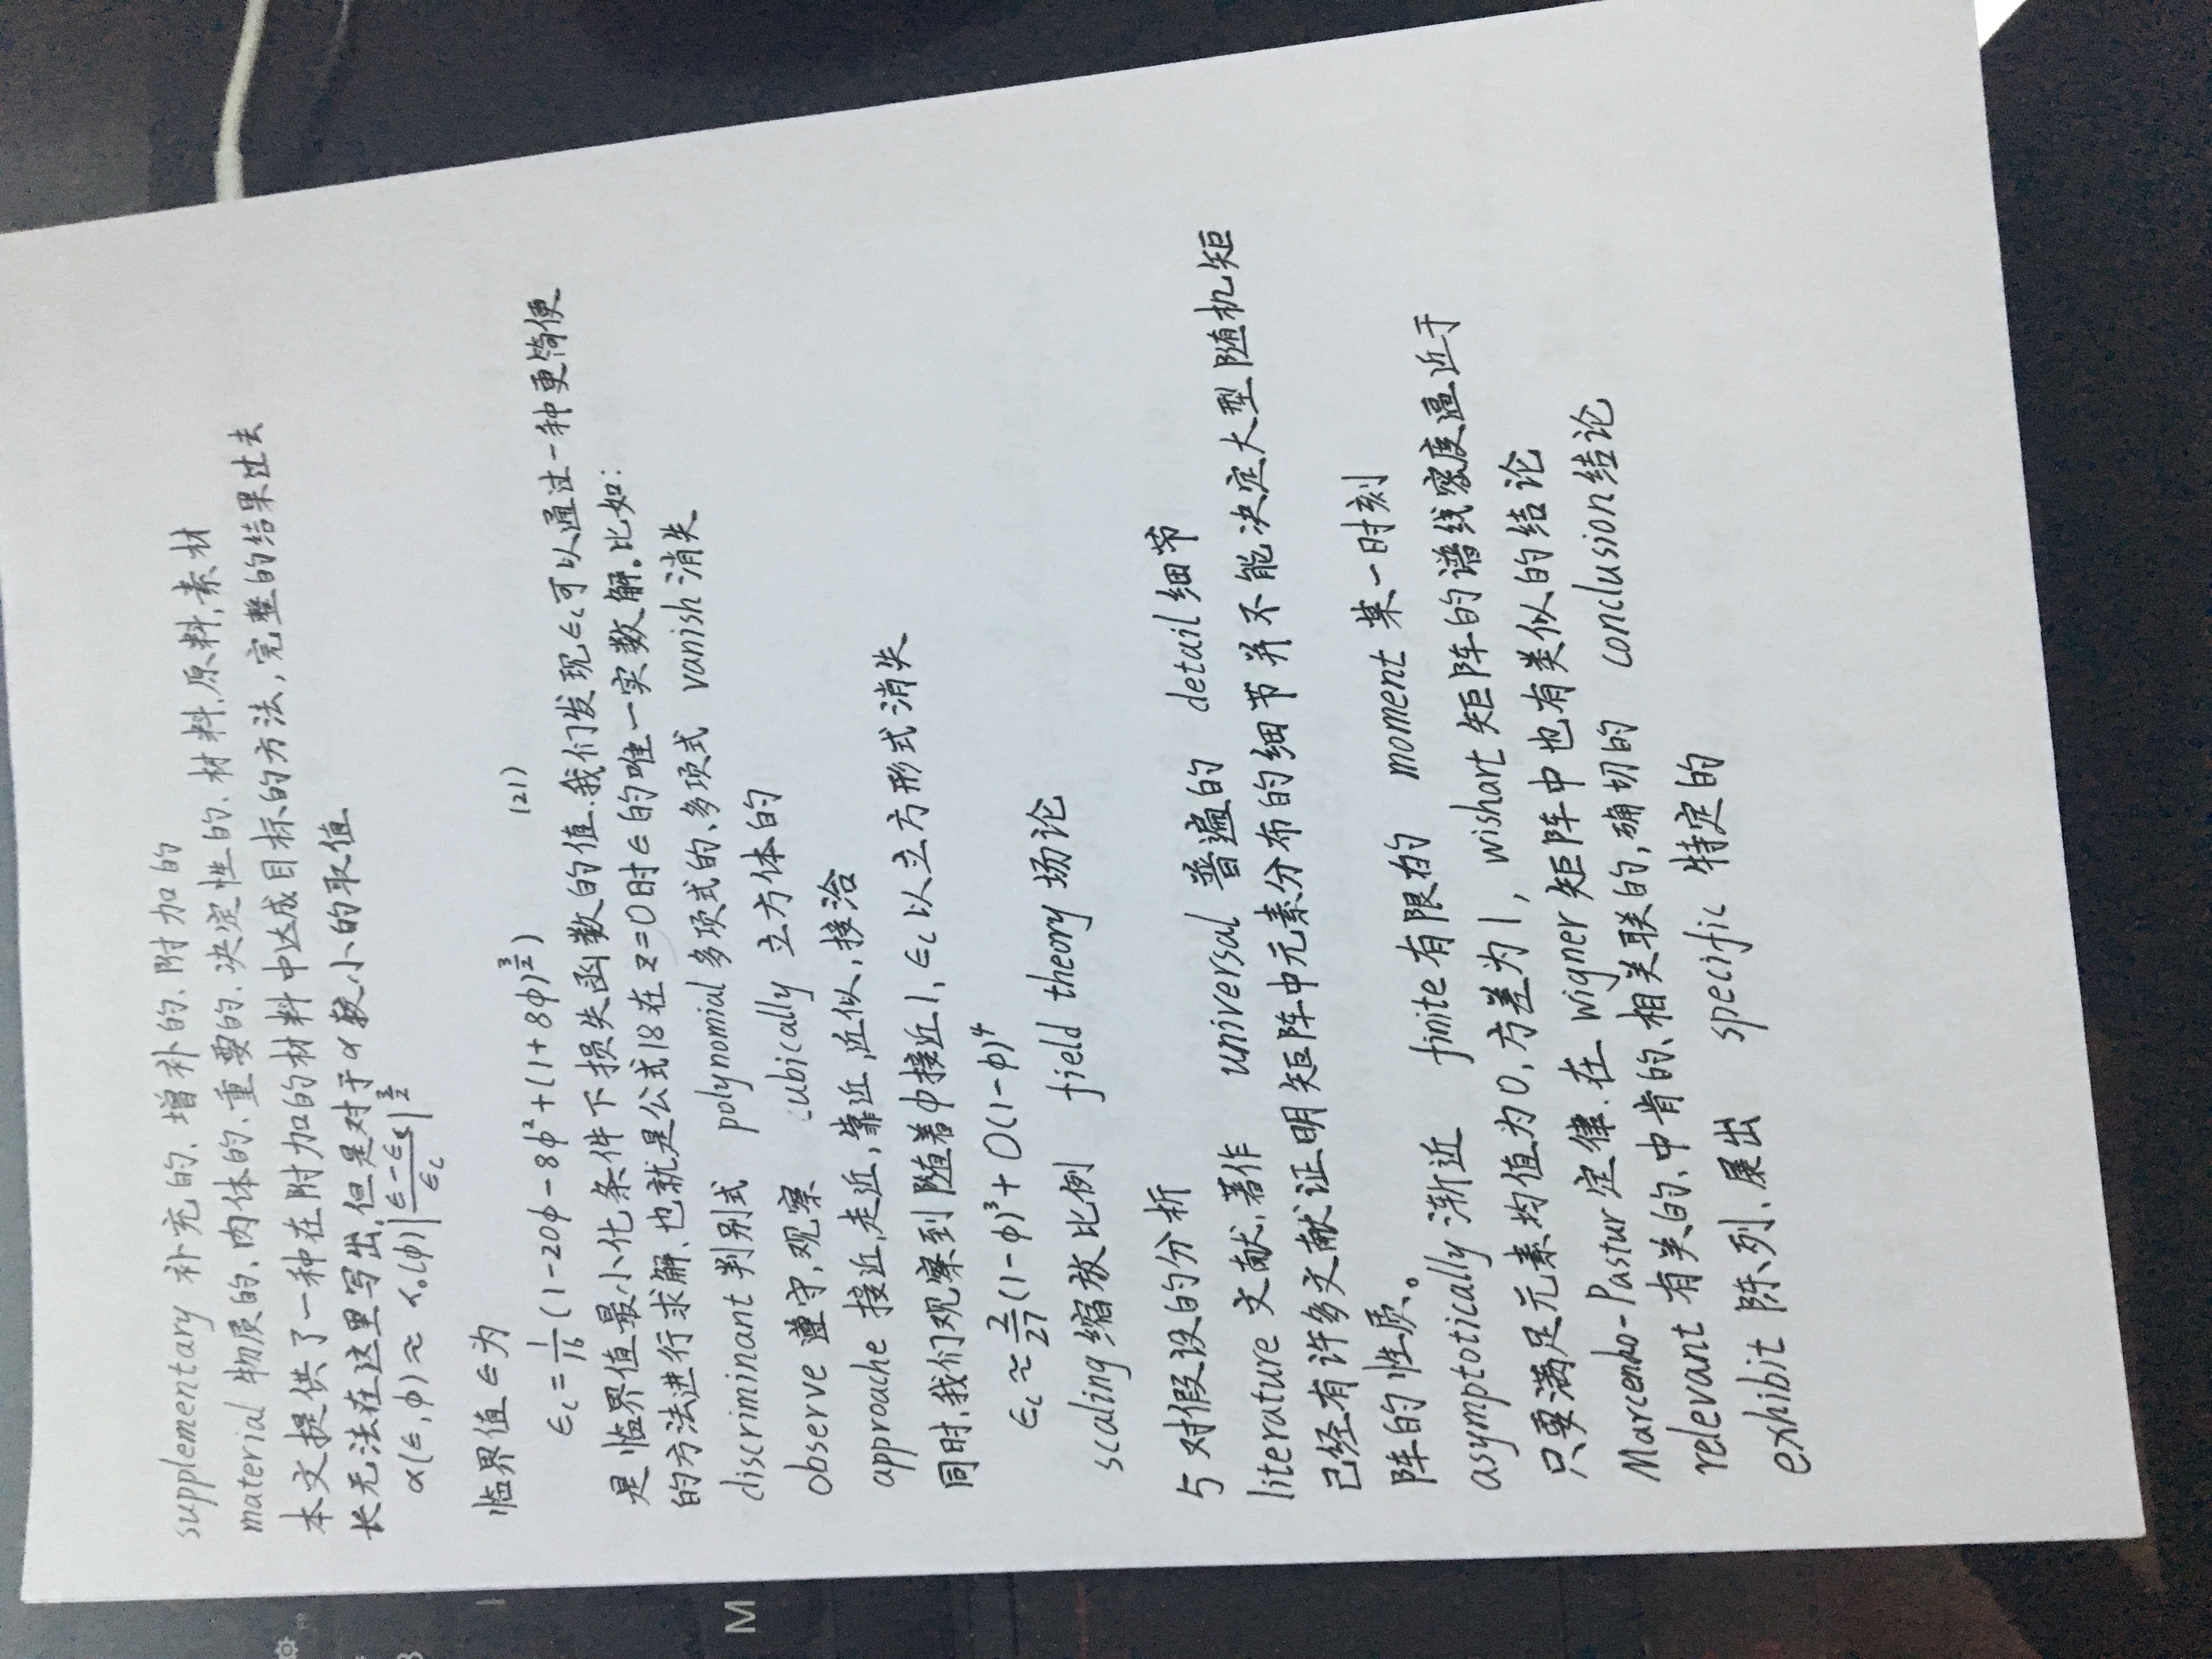 supplementary 补充的、增补的、附加的
material 物质的、肉体的、重要的、决定性的、材料,原料,素材
本文提供了一种在附加的材料中达成目标的方法,完整的结果过去
长无法在这里写出,但是对于α较小的取值
α(ϵ,ϕ)≈ α₀(ϕ)|(ϵ-ϵc)/ϵc|^(3/2)
临界值ϵ为
ϵc=1/16(1-20ϕ-8ϕ²+(1+8ϕ)^(3/2)) (21)
是临界值最小化条件下损失函数的值.我们发现ϵc可以通过一种更简便
的方法进行求解、也就是公式18在z=0时ϵ的唯一实数解。比如:
discriminant 判别式 polynomial 多项式的、多项式 vanish 消失
observe 遵守,观察 cubically 立方体的
approache 接近,走近,靠近,近似,接洽
同时,我们观察到随着ϕ接近1,ϵc以立方形式消失
ϵc≈2/27(1-ϕ)³+O(1-ϕ)⁴
scaling 缩放比例 field theory 场论
5 对假设的分析
literature 文献,著作 universal 普遍的 detail 细节
已经有许多文献证明矩阵中元素分布的细节并不能决定大型随机矩
阵的性质。
asymptotically 渐近 finite 有限的 moment 某一时刻
只要满足元素均值为0,方差为1, wishart 矩阵的谱线密度逼近于
Marcenko-Pastur 定律.在 wigner 矩阵中也有类似的结论
relevant 有关的、中肯的、相关联的,确切的 conclusion 结论
exhibit 陈列、展出 specific 特定的
M
F9